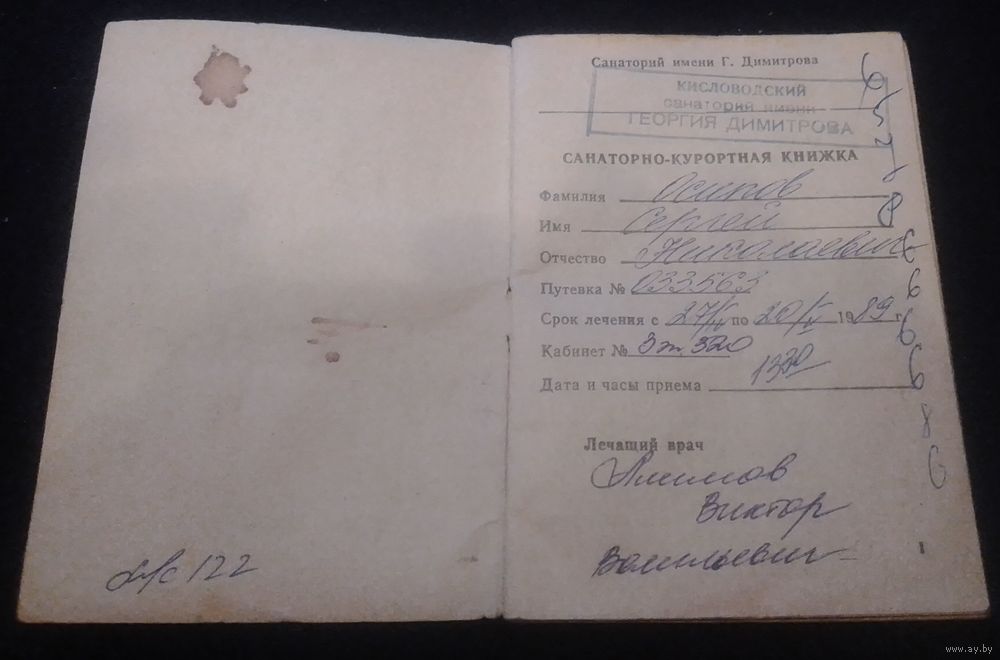 122
Санаторий имени Г. Димитрова
КИСЛОВОДСКИЙ
санаторий имени
ГЕОРГИЯ ДИМИТРОВА
САНАТОРНО-КУРОРТНАЯ КНИЖКА
Фамилия Осипов
Имя Сергей
Отчество Николаевич
Путевка № 033563
Срок лечения с 27/IV по 20/V 1989 г.
Кабинет № 3 эт. 320
Дата и часы приема 1330
Лечащий врач
Виктор
Васильевич
www.ay.by